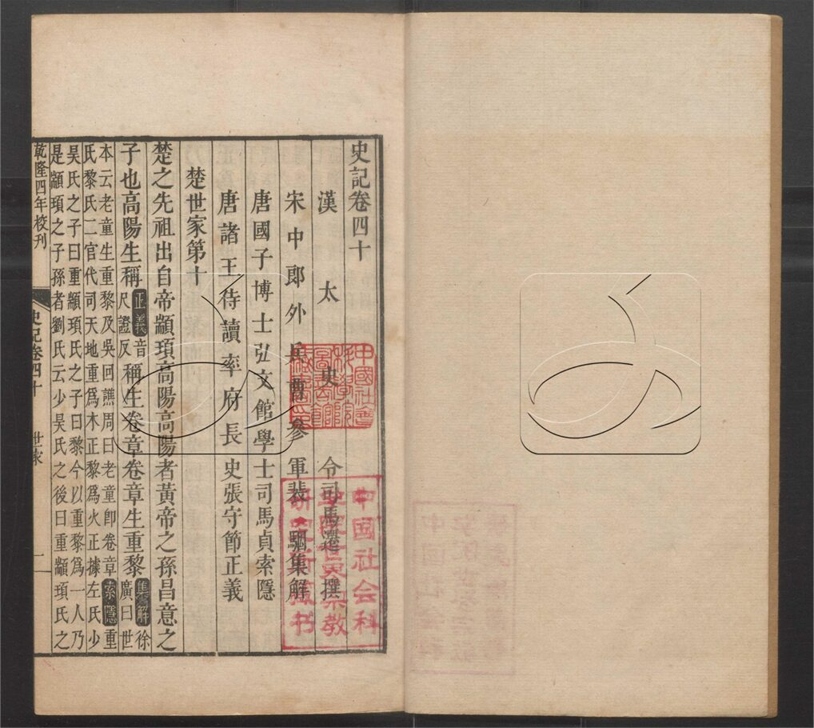 史記卷四十
漢太史令司馬遷撰
宋中郎外兵曹參軍裴駰集解
唐國子博士弘文館學士司馬貞索隱
唐諸王侍讀率府長史張守節正義
楚世家第十
楚之先祖出自帝顓頊高陽高陽者黃帝之孫昌意之
子也高陽生稱正義音尺證反稱生卷章卷章生重黎集解徐廣曰世
本云老童生重黎及吳回譙周曰老童卽卷章索隱重
氏黎氏二官代司天地重爲木正黎爲火正據左氏少
昊氏之子曰重顓頊氏之子曰黎今以重黎爲一人乃
是顓頊之子孫者劉氏云少昊氏之後曰重顓頊氏之
乾隆四年校刊
史記卷四十
世家
一
中國社會
科學院
中国社会科